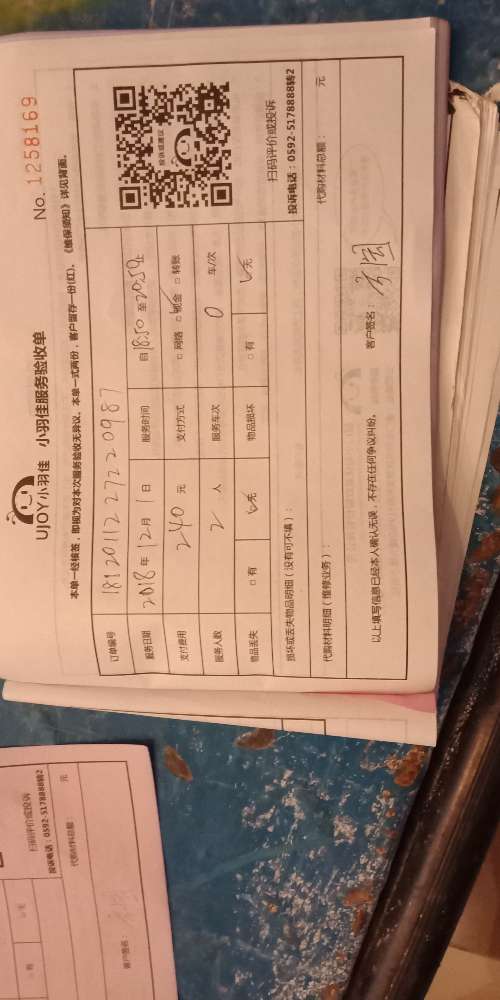 UJOY小羽佳 小羽佳服务验收单
No. 1258169
本单一经核签，即视为对本次服务验收无异议。本单一式两份，客户留存一份(红)。《维保须知》详见背面。
订单编号 18120112272220987
服务日期 2018年12月1日 服务时间 自18:50至20:50止
支付费用 240元 支付方式 □网络 □现金 □转账
服务人数 2人 服务车次 0车/次
物品丢失 □有 ☑无 物品损坏 □有 ☑无
投诉或建议
扫码评价或投诉
投诉电话：0592-5178888转2
损坏或丢失物品明细（没有可不填）：
代购材料明细（维修业务）： 代购材料总额： 元
以上填写信息已经本人确认无误，不存在任何争议纠纷。
客户签名：
扫码评价或投诉
投诉电话：0592-5178888转2
代购材料总额： 元
□有 无
客户签名